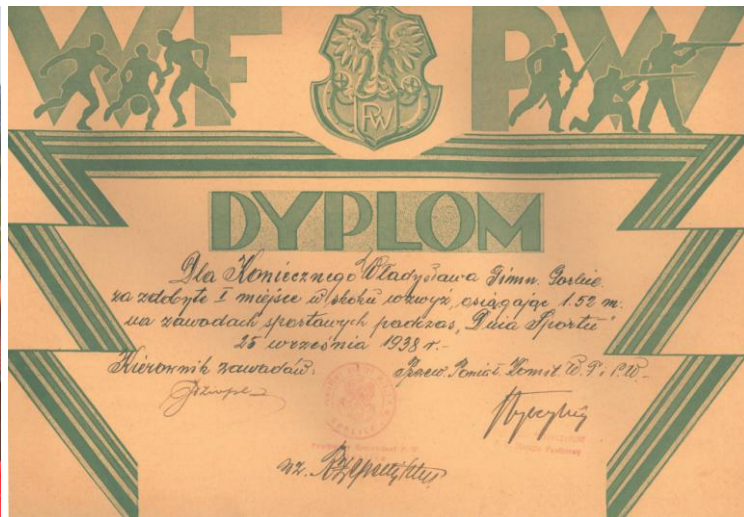 WF PW
PW
DYPLOM
Dla Koniecznego Władysława Gimn. Gorlice
za zdobyte I miejsce w skoku wzwyż, osiągając 1.52 m.
na zawodach sportowych podczas „Dnia Sportu”
25 września 1938 r. -
Kierownik zawodów: Przew. Powiat. Komit. W.F. i P.W. -
wz.